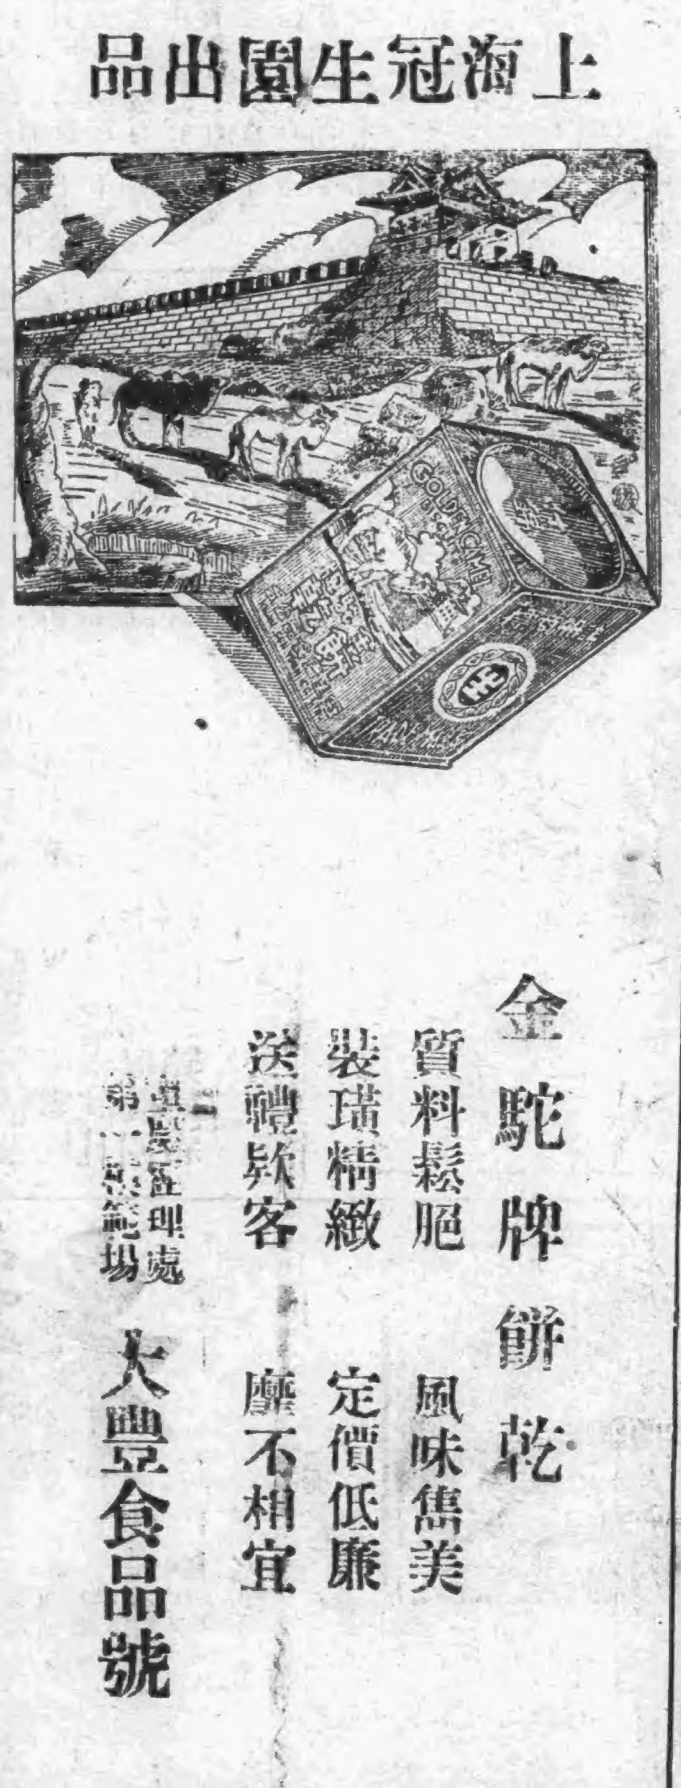 上海冠生園出品
GOLDEN CAMEL
餅乾
金駝牌餅乾
質料鬆肥 風味雋美
裝璜精緻 定價低廉
送禮欵客 靡不相宜
管理處
第一模範場
大豐食品號